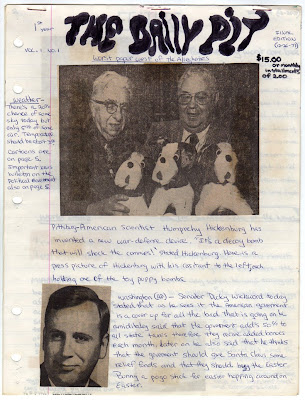 1st year
THE DAILY PIT
FINAL
EDITION
Vol. 1 No. 1
worst paper west of the Alleghenies
$15.00
or monthly
installments
of 2.00
weather-
There's a 20%
chance of some
sky today but
only 5% of some
car. Temperature
should be about 30
Cartoons are
on page 5.
Important
bulletin on the
Political
also on page 5.
Pittsburg-American scientist Humphrey Hickenburg has
invented a new war-defense device. "It's a decoy bomb
that will shock the commies" stated Hickenburg. Here is a
press picture of Hickenburg with his assistant to the left, each
holding one of the toy puppy bombs.
Washington (AP)- Senator Ducky Wickwood today
stated that as he saw it the American government
is a cover up for all the bad that is going on. He
admittedly said that the government adds 50% to
all state taxes therefore they have added bonuses
each month, later on he also said that he thinks
that the government should give Santa Claus some
relief funds and that they should buy the Easter
Bunny a pogo stick for easier hopping around on
Easter.